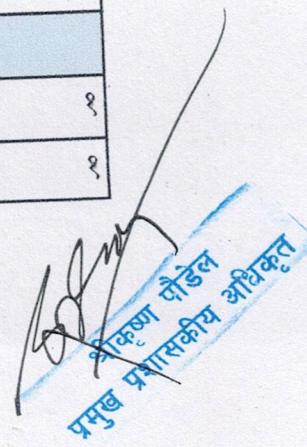 १
१
श्रीकृष्ण पौडेल
प्रमुख प्रशासकीय अधिकृत